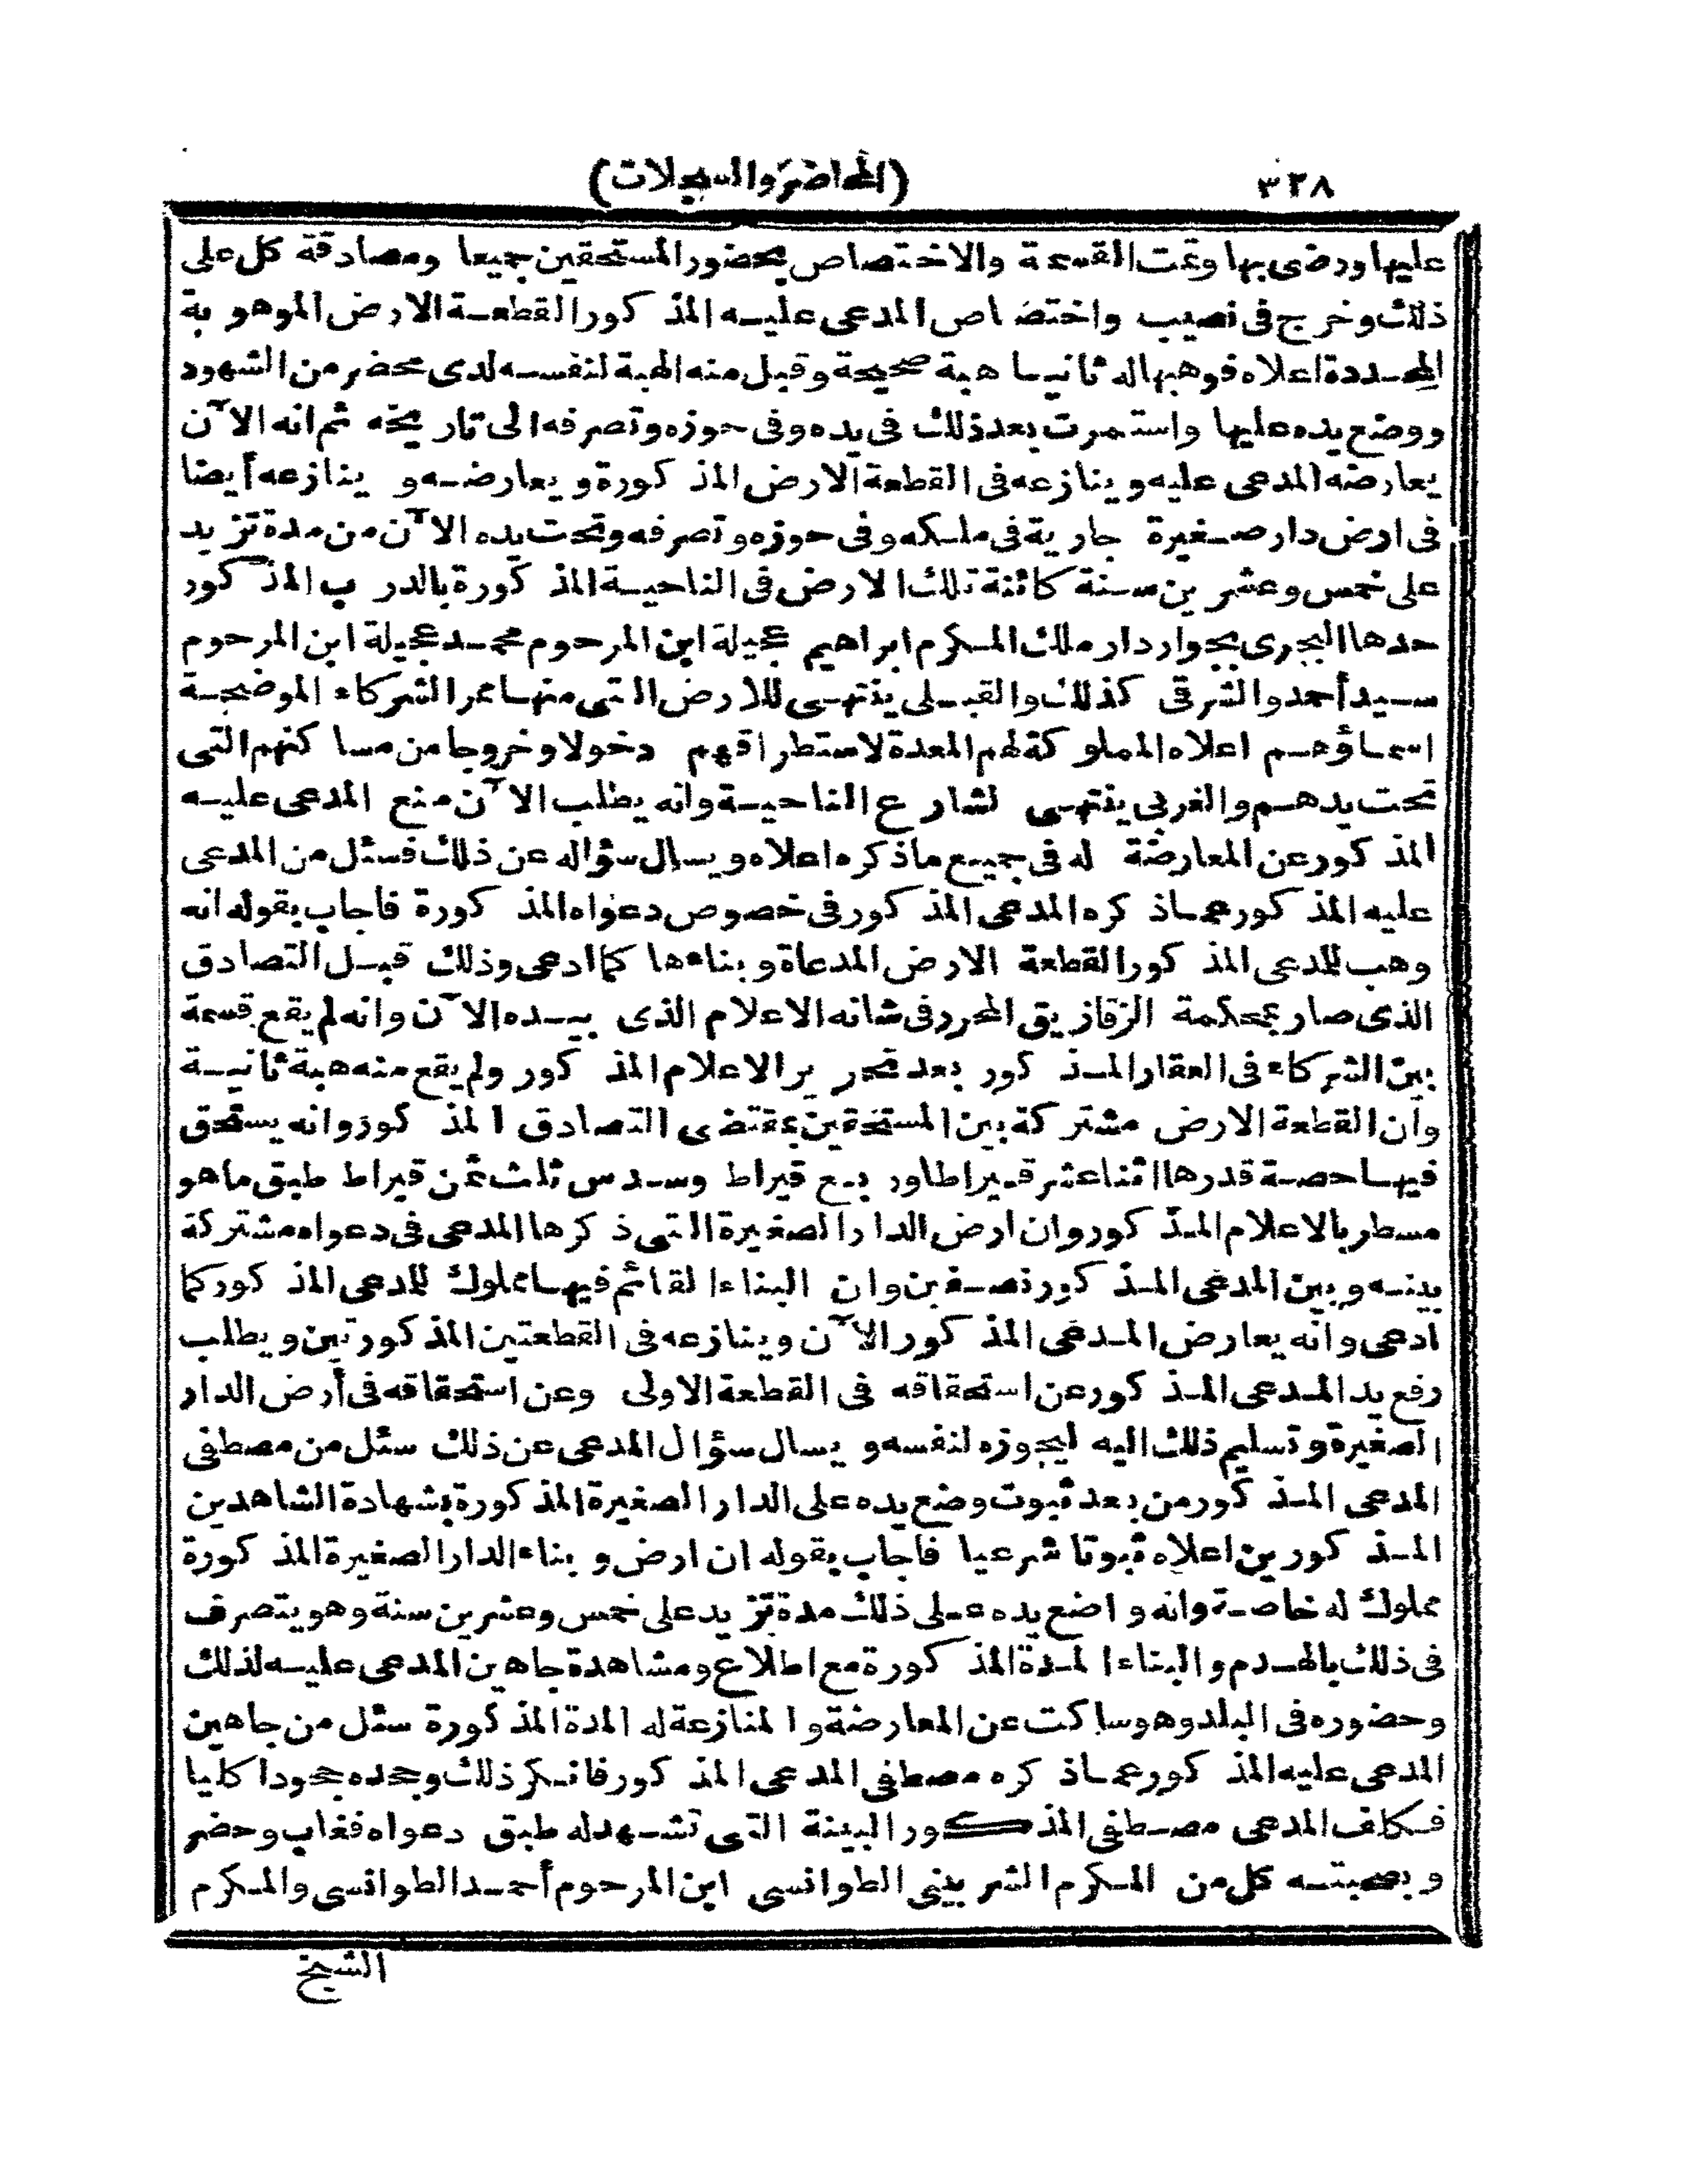 ٣٢٨ (المحاضر والسجلات)
عليها ورضى بها وتمت القسمة والاختصاص بحضور المستحقين جميعا ومصادقة كل على
ذلك وخرج فى نصيب واختصاص المدعى عليه المذكور القطعة الارض الموهوبة
المحددة اعلاه فوهبها له ثانيا هبة صحيحة وقبل منه الهبة لنفسه لدى محضر من الشهود
ووضع يده عليها واستمرت بعد ذلك فى يده وفى حوزه وتصرفه الى تاريخه ثم انه الآن
يعارضه المدعى عليه وينازعه فى القطعة الارض المذكورة ويعارضه وينازعه أيضا
فى ارض دار صغيرة جارية فى ملكه وفى حوزه وتصرفه وتحت يده الآن من مدة تزيد
على خمس وعشرين سنة كائنة تلك الارض فى الناحية المذكورة بالدرب المذكور
حدها البحرى بجوار دار ملك المكرم ابراهيم عجيلة ابن المرحوم محمد عجيلة ابن المرحوم
سيد أحمد والشرقى كذلك والقبلى ينتهى للارض التى منها ممر الشركاء الموضحة
اسماؤهم اعلاه المملوكة لهم المعدة لاستطراقهم دخولا وخروجا من مساكنهم التى
تحت يدهم والغربى ينتهى لشارع الناحية وانه يطلب الآن منع المدعى عليه
المذكور عن المعارضة له فى جميع ماذكره اعلاه ويسال سؤاله عن ذلك فسئل من المدعى
عليه المذكور عما ذكره المدعى المذكور فى خصوص دعواه المذكورة فاجاب بقوله انه
وهب للمدعى المذكور القطعة الارض المدعاة وبناءها كما ادعى وذلك قبل التصادق
الذى صار بمحكمة الزقازيق المحرر فى شانه الاعلام الذى بيده الآن وانه لم يقع قسمة
بين الشركاء فى العقار المذكور بعد تحرير الاعلام المذكور ولم يقع منه هبة ثانية
وأن القطعة الارض مشتركة بين المستحقين بمقتضى التصادق المذكور وانه يستحق
فيها حصة قدرها اثنا عشر قيراطا وربع قيراط وسدس ثلث ثمن قيراط طبق ما هو
مسطر بالاعلام المذكور وان ارض الدار الصغيرة التى ذكرها المدعى فى دعواه مشتركة
بينه وبين المدعى المذكور نصفين وان البناء القائم فيها مملوك للمدعى المذكور كما
ادعى وانه يعارض المدعى المذكور الآن وينازعه فى القطعتين المذكورتين ويطلب
رفع يد المدعى المذكور عن استحقاقه فى القطعة الاولى وعن استحقاقه فى أرض الدار
الصغيرة وتسليم ذلك اليه ليحوزه لنفسه ويسال سؤال المدعى عن ذلك سئل من مصطفى
المدعى المذكور من بعد ثبوت وضع يده على الدار الصغيرة المذكورة بشهادة الشاهدين
المذكورين اعلاه ثبوتا شرعيا فاجاب بقوله ان ارض وبناء الدار الصغيرة المذكورة
مملوك له خاصة وانه واضع يده على ذلك مدة تزيد على خمس وعشرين سنة وهو يتصرف
فى ذلك بالهدم والبناء المدة المذكورة مع اطلاع ومشاهدة جاهين المدعى عليه لذلك
وحضوره فى البلد وهو ساكت عن المعارضة والمنازعة له المدة المذكورة سئل من جاهين
المدعى عليه المذكور عما ذكره مصطفى المدعى المذكور فانكر ذلك وجحده جحودا كليا
فكلف المدعى مصطفى المذكور البينة التى تشهد له طبق دعواه فغاب وحضر
وبصحبته كل من المكرم الشربينى الطوانسى ابن المرحوم أحمد الطوانسى والمكرم
الشيخ